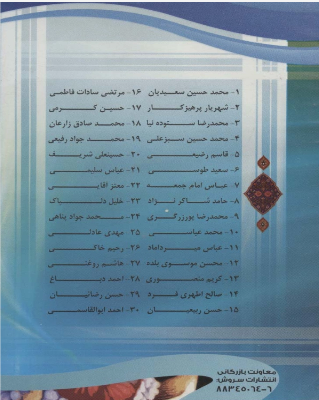 ۱- محمد حسین سعیدیان
۲- شهریار پرهیزگار
۳- محمدرضا ستوده نیا
۴- محمد حسین سبزعلی
۵- قاسم رضیعی
۶- سعید طوسی
۷- عباس امام جمعه
۸- حامد شاکر نژاد
۹- محمدرضا پورزرگری
۱۰- محمد عباسی
۱۱- عباس میرداماد
۱۲- محسن موسوی بلده
۱۳- کریم منصوری
۱۴- صالح اطهری فرد
۱۵- حسن ربیعیان
۱۶- مرتضی سادات فاطمی
۱۷- حسین کرمی
۱۸- محمد صادق زارعان
۱۹- محمد جواد رفیعی
۲۰- حسینعلی شریف
۲۱- عباس سلیمی
۲۲- معتز آقایی
۲۳- خلیل دلپاک
۲۴- محمد جواد پناهی
۲۵- مهدی عادلی
۲۶- رحیم خاکی
۲۷- هاشم روغنی
۲۸- احمد دباغ
۲۹- حسن رضائیان
۳۰- احمد ابوالقاسمی
معاونت بازرگانی
انتشارات سروش:
۸۸۳۴۵۰۶۴-۶